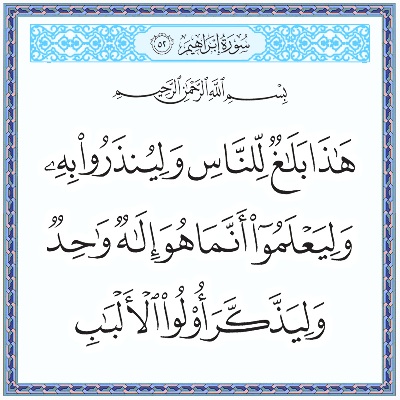 سُورَةُ إِبْرَاهِيم ٥٢
بِسْمِ ٱللَّهِ ٱلرَّحْمَٰنِ ٱلرَّحِيمِ
هَٰذَا بَلَٰغٌ لِّلنَّاسِ وَلِيُنذَرُوا۟ بِهِۦ
وَلِيَعْلَمُوٓا۟ أَنَّمَا هُوَ إِلَٰهٌ وَٰحِدٌ
وَلِيَذَّكَّرَ أُو۟لُوا۟ ٱلْأَلْبَٰبِ